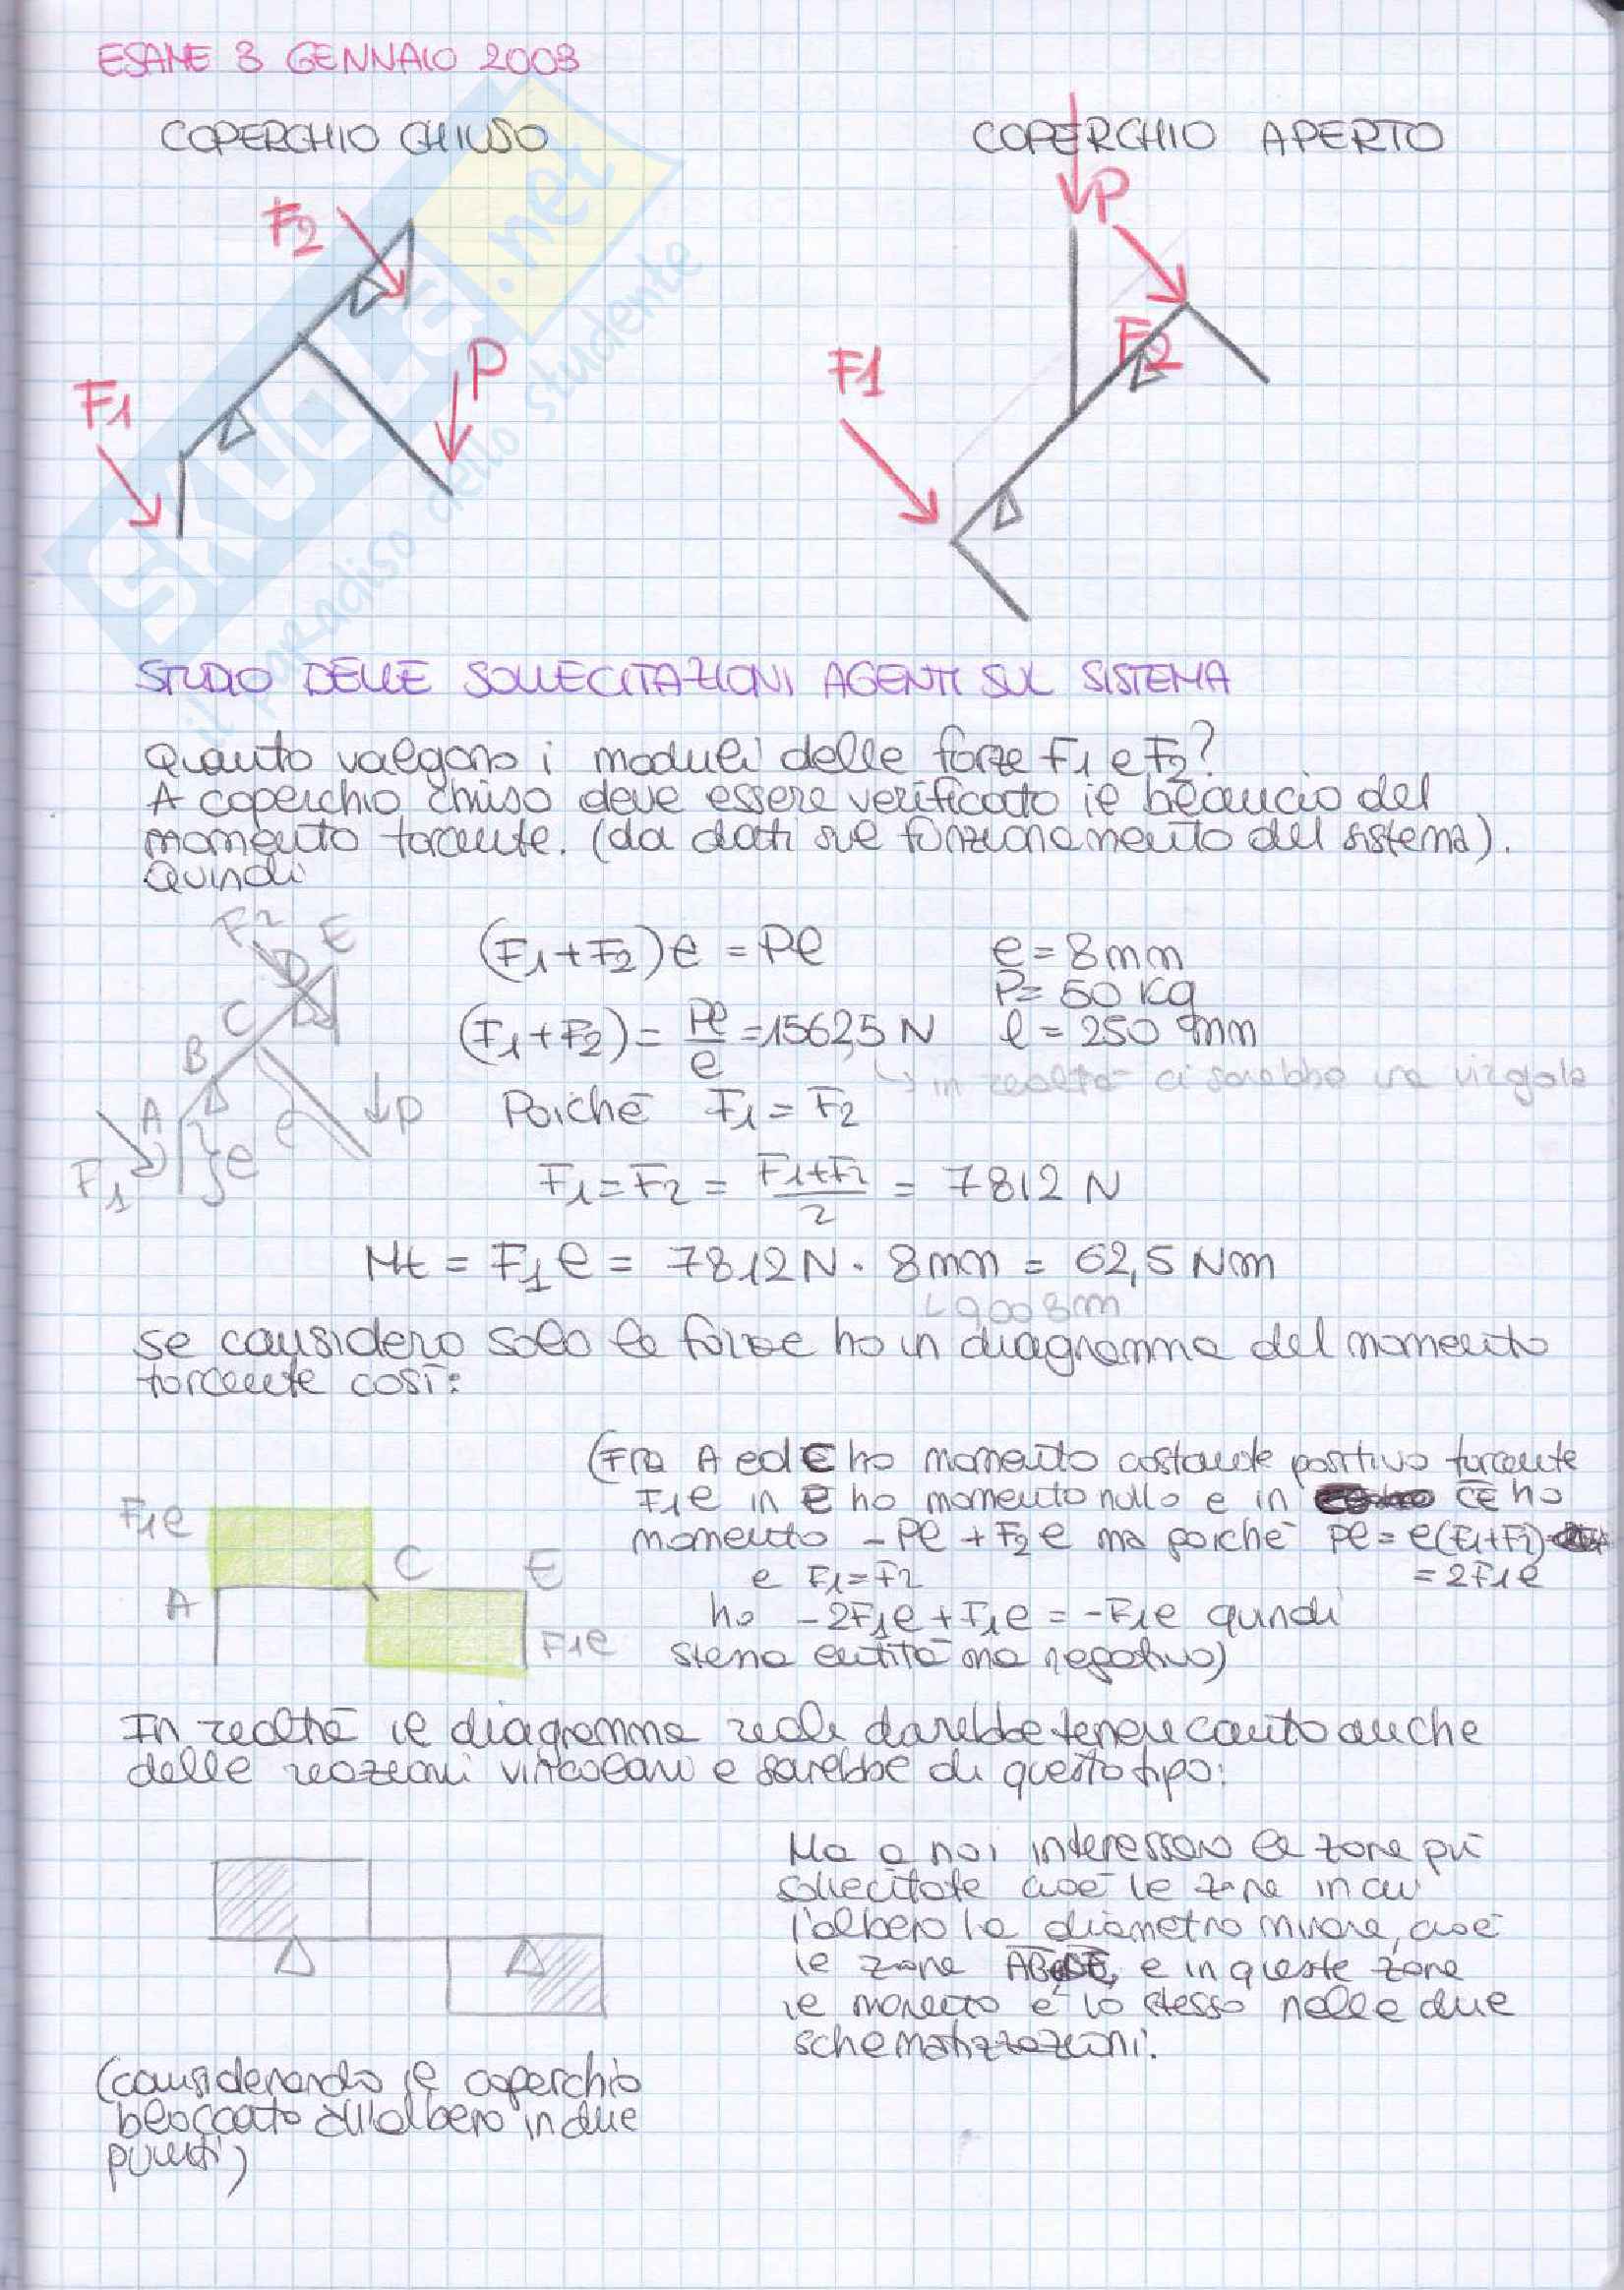 ESAME 3 GENNAIO 2003
COPERCHIO CHIUSO
COPERCHIO APERTO
F2
P
F1
P
F2
F1
SKUOLA.net
il paradiso dello studente
STUDIO DELLE SOLLECITAZIONI AGENTI SUL SISTEMA
Quanto valgono i moduli delle forze F1 e F2?
A coperchio chiuso deve essere verificato il bilancio del
momento torcente. (da dati sul funzionamento del sistema).
Quindi
F2 D E
C
B
A
F1
e
l
P
(F1+F2)e = Pl
e = 8mm
P= 50 Kg
(F1+F2) = Pl/e = 15625 N
l = 250 mm
↳ in realtà ci sarebbe una virgola
Poiché F1 = F2
F1 = F2 = F1+F2/2 = 7812 N
Mt = F1e = 7812 N · 8mm = 62,5 Nm
↳ 0,008m
se considero solo le forze ho un diagramma del momento
torcente così:
(Fra A ed C ho momento costante positivo torcente
F1e in C ho momento nullo e in CE ho
momento -Pl + F2e ma poiché Pl = e(F1+F2)
e F1=F2 = 2F1e
ho -2F1e + F1e = -F1e quindi
stessa entità ma negativo)
F1e
A
C
E
F1e
In realtà il diagramma reale dovrebbe tenere conto anche
delle reazioni vincolari e sarebbe di questo tipo:
Ma a noi interessano le zone più
sollecitate cioè le zone in cui
l'albero ha diametro minore, cioè
le zone AB e DE, e in queste zone
il momento è lo stesso nelle due
schematizzazioni.
(considerando il coperchio
bloccato all'albero in due
punti)